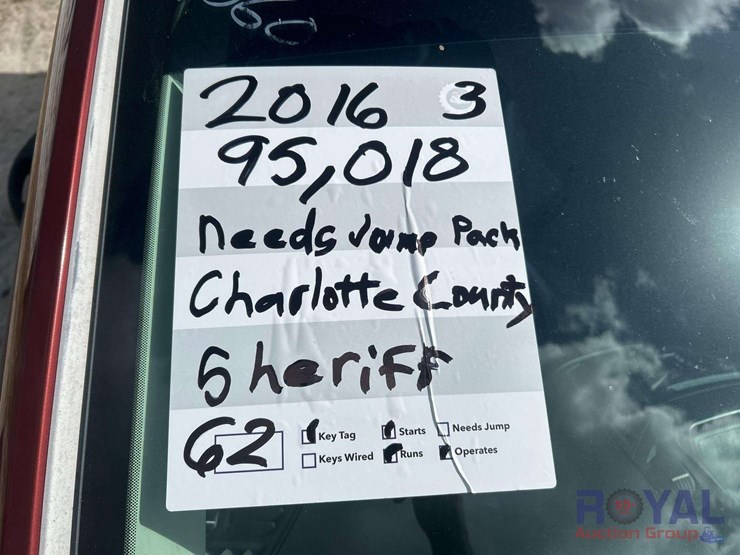 2016 3
95,018
Needs Jump Pack
Charlotte County
Sheriff
62
Key Tag Starts Needs Jump
Keys Wired Runs Operates
ROYAL
Auction Group